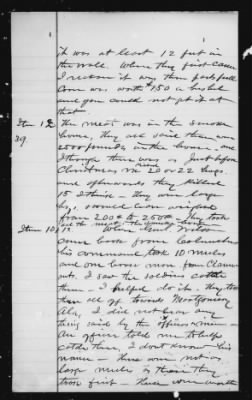 it was at least 12 feet in
the wall. When they first came
I reckon it was three parts full
Corn was worth $1.50 a bushel
and you could not get it at
that
Item 12 The meat was in the smoke
39. house, they all said there were
2000 pounds in the house - and
I think there was. Just before
Christmas we 20 or 22 hogs
and afterwards they killed
15 or They were large
hogs, weighed from
200 to 250 They took
all the meat
Item 10/11 When Genl Wilson
came back from Columbus
his command took 10 mules
and one horse more from Claimt
ants. I saw the soldiers catch
them - I helped do it. They took
them all off towards Montgomery
Ala, I did not hear any
thing said by the officers or men -
An officer told me to help
catch them, I dont know his
name - these were not as
large mules as those they
took first - these were worth